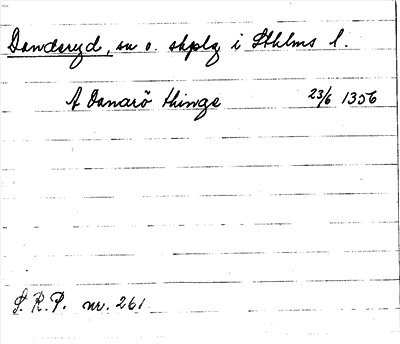 Danderyd, sn o. skplg i Sthlms l.
A Danarö thinge 23/6 1356
S. R. P. nr. 261